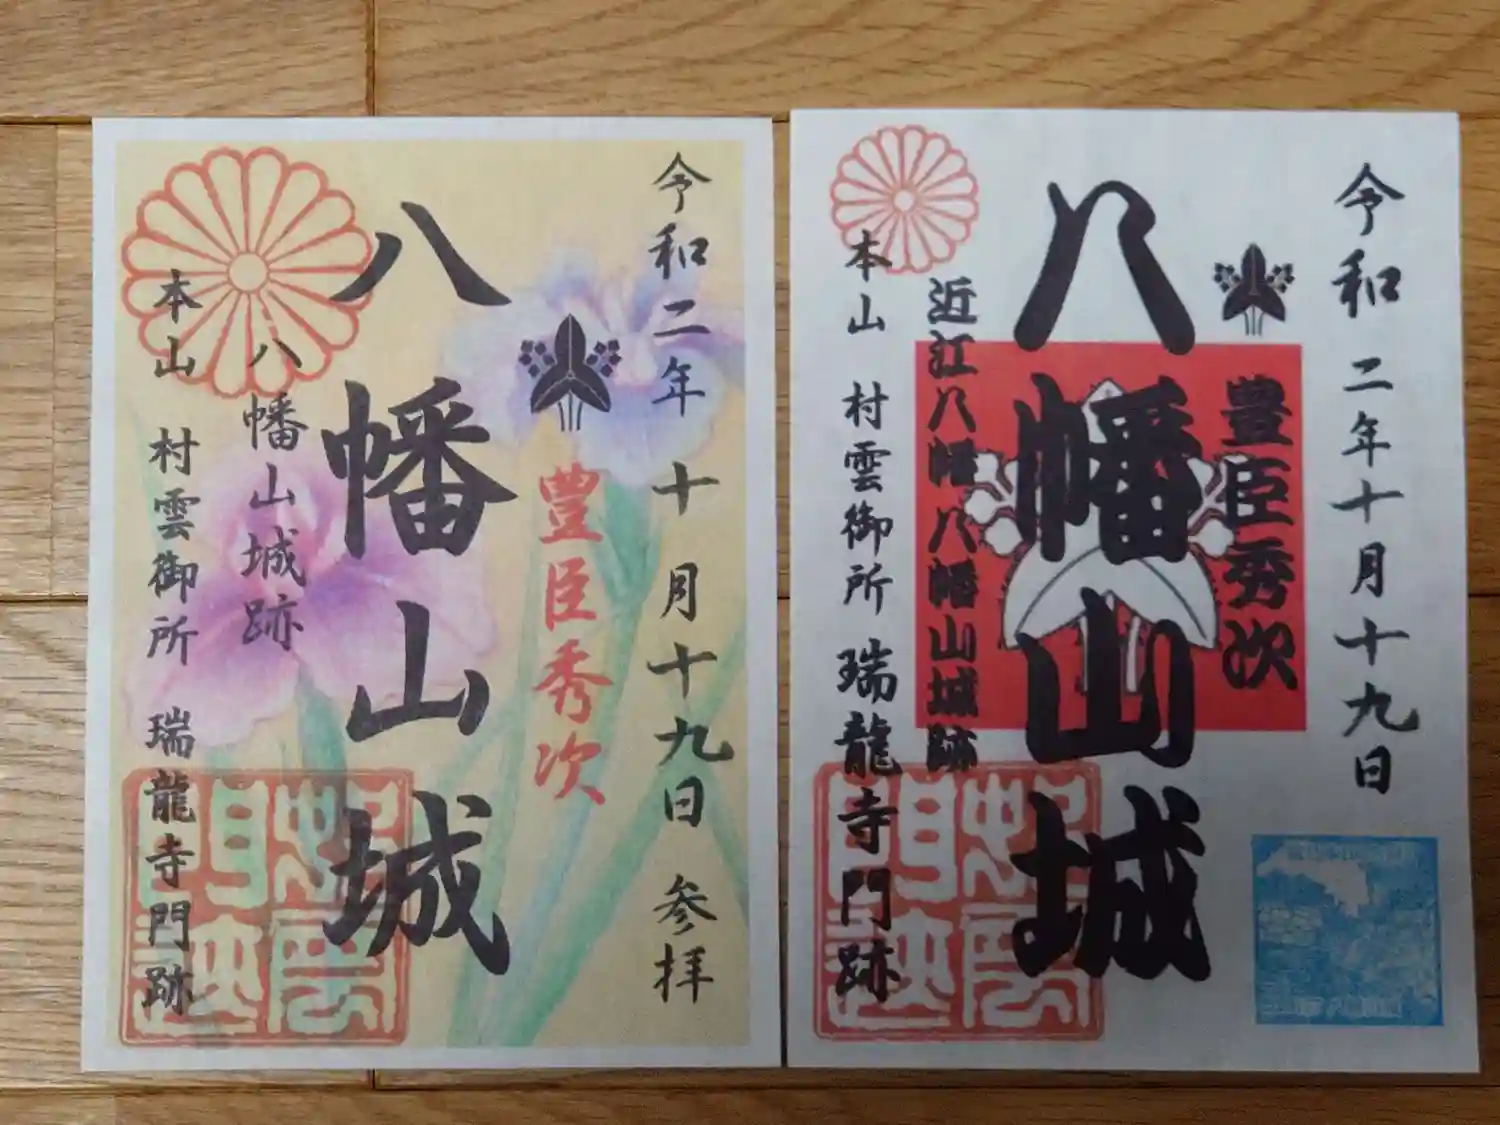 令和二年 十月十九日 参拝
豊臣秀次
八幡山城
八幡山城跡
本山 村雲御所 瑞龍寺門跡
令和 二年十月十九日
豊臣秀次
八幡山城
近江八幡 八幡山城跡
本山 村雲御所 瑞龍寺門跡